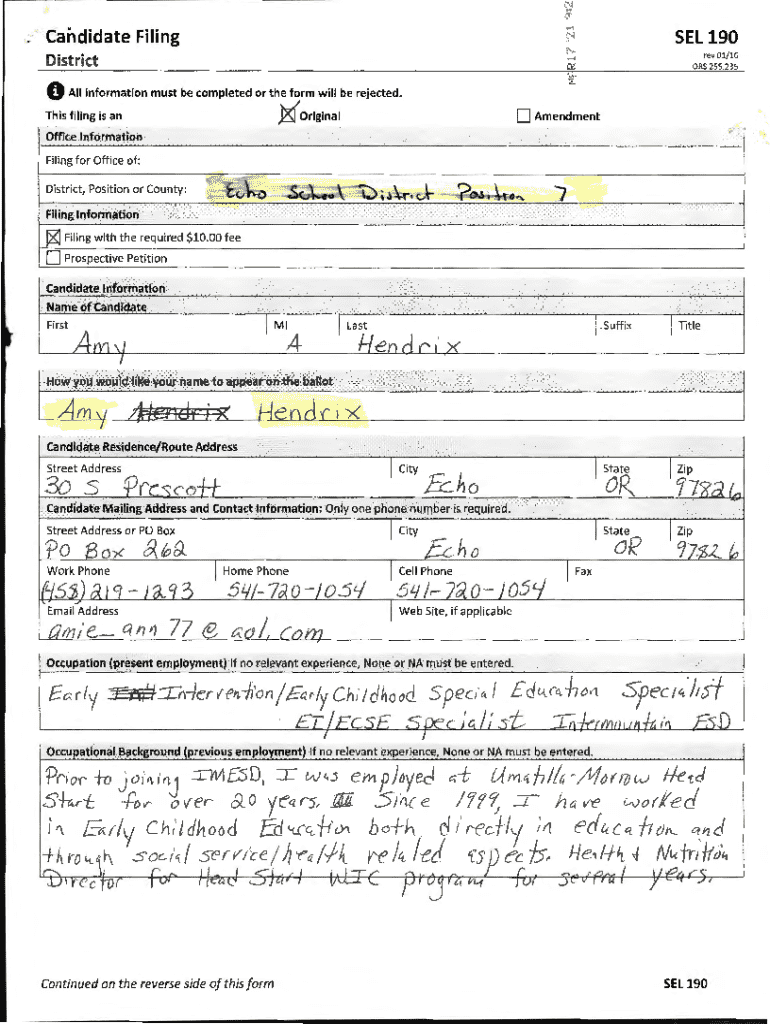 Candidate Filing
SEL 190
District
rev 01/16
ORS 255.235
MAR17 '21
All information must be completed or the form will be rejected.
This filing is an Original Amendment
Office Information
Filing for Office of:
District, Position or County: Echo School District Position 7
Filing Information
Filing with the required $10.00 fee
Prospective Petition
Candidate Information
Name of Candidate
First MI Last Suffix Title
Amy A Hendrix
How you would like your name to appear on the ballot
Amy Hendrix Hendrix
Candidate Residence/Route Address
Street Address City State Zip
30 S Prescott Echo OR 97826
Candidate Mailing Address and Contact Information: Only one phone number is required.
Street Address or PO Box City State Zip
PO Box 262 Echo OR 97826
Work Phone Home Phone Cell Phone Fax
(458) 219-1293 541-720-1054 541-720-1054
Email Address Web Site, if applicable
amie_ann77@aol.com
Occupation (present employment) If no relevant experience, None or NA must be entered.
Early Intervention/Early Childhood Special Education Specialist
EI/ECSE Specialist Intermountain ESD
Occupational Background (previous employment) If no relevant experience, None or NA must be entered.
Prior to joining IMESD, I was employed at Umatilla-Morrow Head
Start for over 20 years. Since 1999, I have worked
in Early Childhood Education both directly in education and
through social service/health related aspects. Health & Nutrition
Director for Head Start WIC program for several years.
Continued on the reverse side of this form
SEL 190